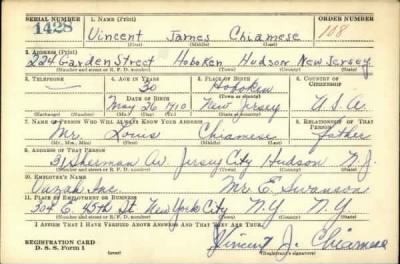 SERIAL NUMBER 1. NAME (Print) ORDER NUMBER
1428 Vincent James Chiamese 108
(First) (Middle) (Last)
2. ADDRESS (Print)
224 Garden Street Hoboken Hudson New Jersey
(Number and street or R. F. D. number) (Town) (County) (State)
3. TELEPHONE 4. AGE IN YEARS 5. PLACE OF BIRTH 6. COUNTRY OF CITIZENSHIP
— 30 Hoboken
DATE OF BIRTH (Town or county)
May 26 1910 New Jersey U.S.A.
(Mo.) (Day) (Yr.) (State or country)
7. NAME OF PERSON WHO WILL ALWAYS KNOW YOUR ADDRESS 8. RELATIONSHIP OF THAT PERSON
Mr. Louis Chiamese father
(Mr., Mrs., Miss) (First) (Middle) (Last)
9. ADDRESS OF THAT PERSON
31 Sherman Av. Jersey City Hudson N.J.
(Number and street or R. F. D. number) (Town) (County) (State)
10. EMPLOYER'S NAME
Inc. Mr E. Swanson
11. PLACE OF EMPLOYMENT OR BUSINESS
304 E. 45th St. New York City N.Y. N.Y.
(Number and street or R. F. D. number) (Town) (County) (State)
I AFFIRM THAT I HAVE VERIFIED ABOVE ANSWERS AND THAT THEY ARE TRUE.
REGISTRATION CARD
D. S. S. Form 1 Vincent J. Chiamese
(Registrant's signature)